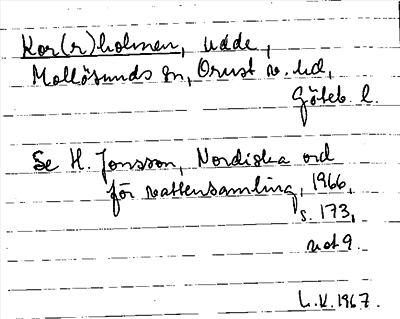 Kor(r)holmen, udde,
Mollösunds sn, Orust v. hd,
Göteb. l.
Se H. Jonsson, Nordiska ord
för vattensamling, 1966,
s. 173,
not 9.
L.K. 1967.